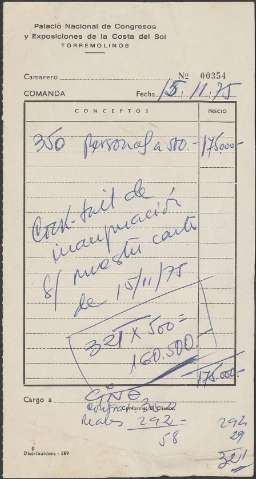 Palacio Nacional de Congresos
y Exposiciones de la Costa del Sol
TORREMOLINOS
Camarero Nº 00354
COMANDA Fecha 15.11.75
CONCEPTOS PRECIO
350 personas a 500.- 175.000-
Cock-tail de
inauguración
s/ nuestra carta
de 15/11/75
321 x 500 =
160.500.-
175.000.-
Cargo a
CINE
350
Reales 292 = 292
58 29
321